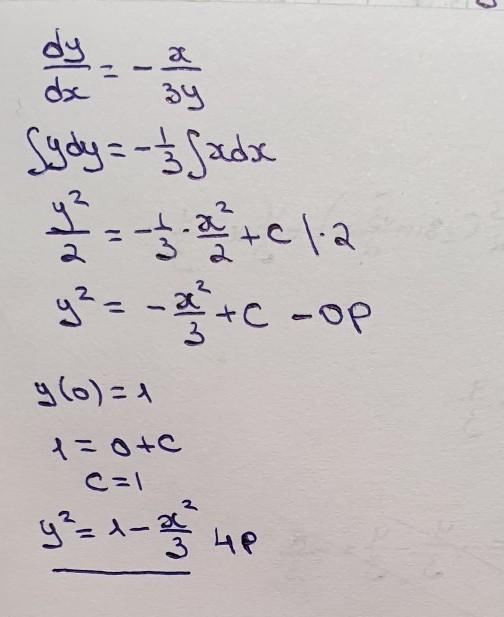 dy/dx = - x/3y
∫ydy = - 1/3 ∫xdx
y²/2 = - 1/3 · x²/2 + c |·2
y² = - x²/3 + c - OP
y(0) = 1
1 = 0 + c
c = 1
y² = 1 - x²/3 ЧP